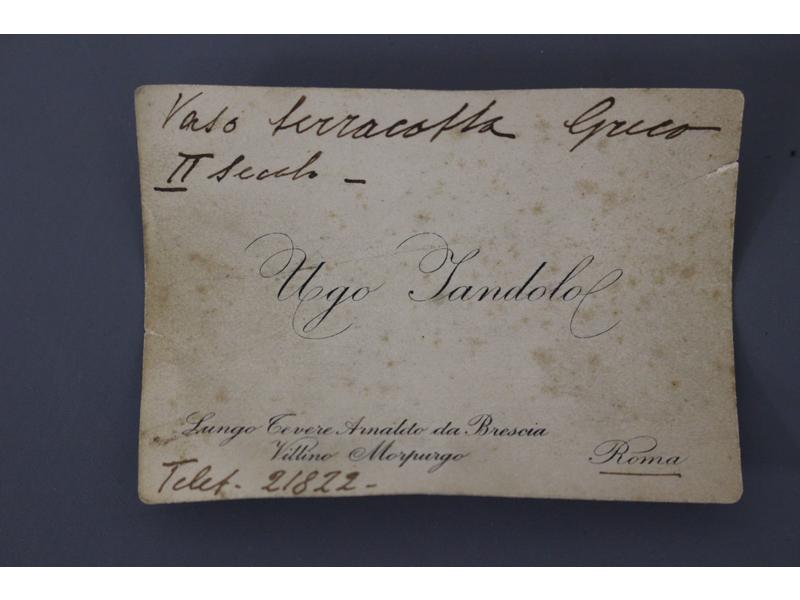 Vaso terracotta Greco
II Secolo -
Ugo Jandolo
Lungo Tevere Arnaldo da Brescia
Villino Morpurgo
Roma
Telef. 21822-